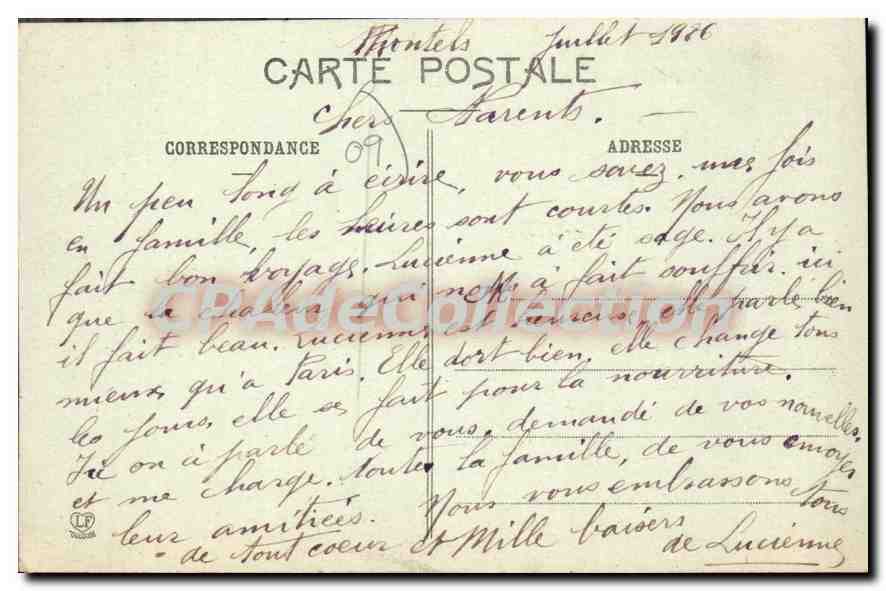 Montels Juillet 1926
CARTE POSTALE
Chers Parents.
CORRESPONDANCE
ADRESSE
09
Un peu long à écrire, vous savez. mes fois
en famille, les heures sont courtes. Nous avons
fait bon voyage. Lucienne à été sage. Il y a
que la chaleur qui nous à fait souffrir. ici
il fait beau. Lucienne est heureuse, elle parle bien
mieux qu'a Paris. Elle dort bien, elle change tous
les jours, elle se fait pour la nourriture.
Ici on à parlé de vous, demandé de vos nouvelles.
et me charge. toute la famille, de vous envoyer
leur amitiées. Nous vous embrassons tous
de tout coeur et Mille baisers
de Lucienne
LF
CPAdeCollection